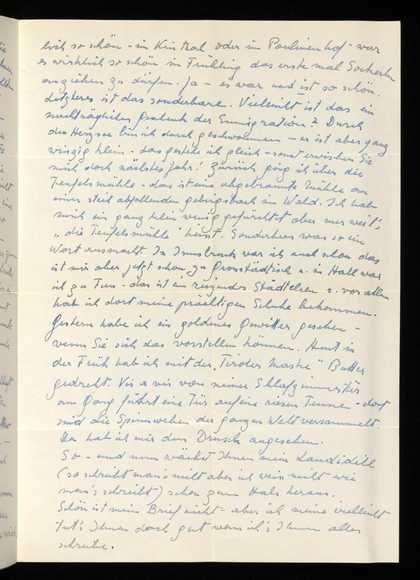 lich so schön - in Kinthal oder in Paulinenhof - war
es wirklich so schön im Frühling das erste mal Sockerln
anziehen zu dürfen. Ja - es war und ist so schön.
Letzteres ist das sonderbare. Vielleicht ist das ein
nachträgliches der Emigration? Durch
den bin ich durch geschwommen - er ist aber ganz
winzig klein - das gestehe ich gleich - sonst erwischen Sie
mich doch nächstes Jahr! Zurück ging ich über die
Teufelsmühle - das ist eine abgebrannte Mühle an
einem steil abfallenden gebirgsbach im Wald. Ich hab
mich ein ganz klein wenig gefürchtet aber nur weil's
"die Teufelsmühle" heisst. Sonderbar was so ein
Wort ausmacht. In Innsbruck war ich auch schon das
ist mir aber jetzt schon zu grosstädtisch u. in Hall war
ich zu Fuss - das ist ein reizendes Städtchen u. vor allem
hab ich dort meine prächtigen Schuhe bekommen.
Gestern habe ich ein goldenes Gewitter gesehen -
wenn Sie sich das vorstellen können. Heut in
der Früh hab ich mit der "Tiroler Maske" Butter
gedreht. Vis a vis von meiner Schlafzimmertür
am Gang führt eine Tür auf eine riesen Tenne - dort
sind die Spinnweben der ganzen Welt versammelt
Da hab ich mir den Drusch angesehen.
So - und nun wächst Ihnen mein
(so schreibt man's nicht aber ich weiss nicht wie
man's schreibt) schon zum Hals heraus.
Schön ist mein Brief nicht - aber ich meine vielleicht
tut's Ihnen doch gut wenn ich's Ihnen alles
schreibe.